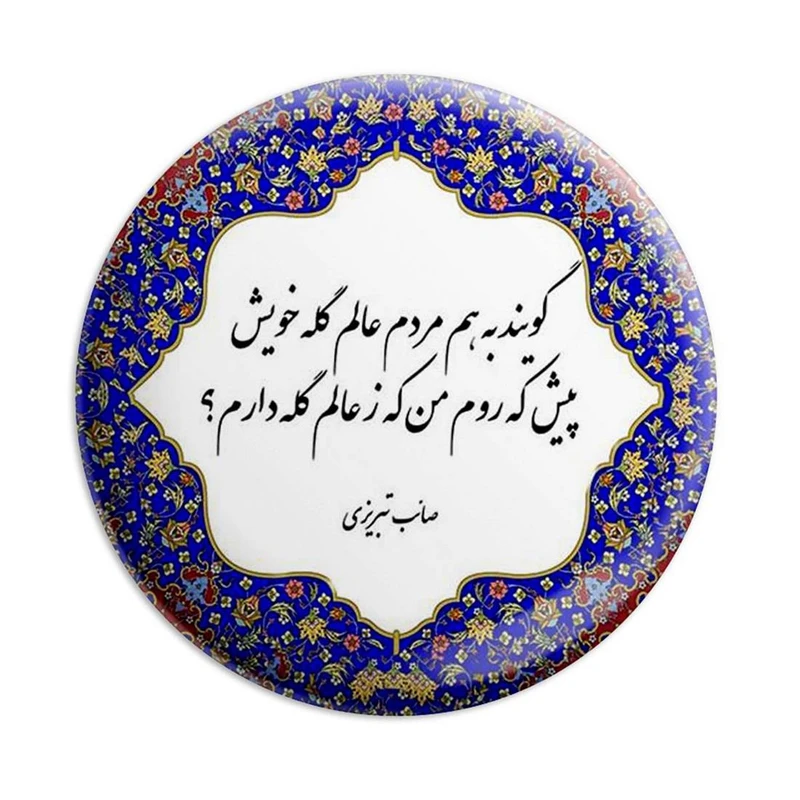 گویند به هم مردم عالم گله خویش
پیش که روم من که ز عالم گله دارم؟
صائب تبریزی